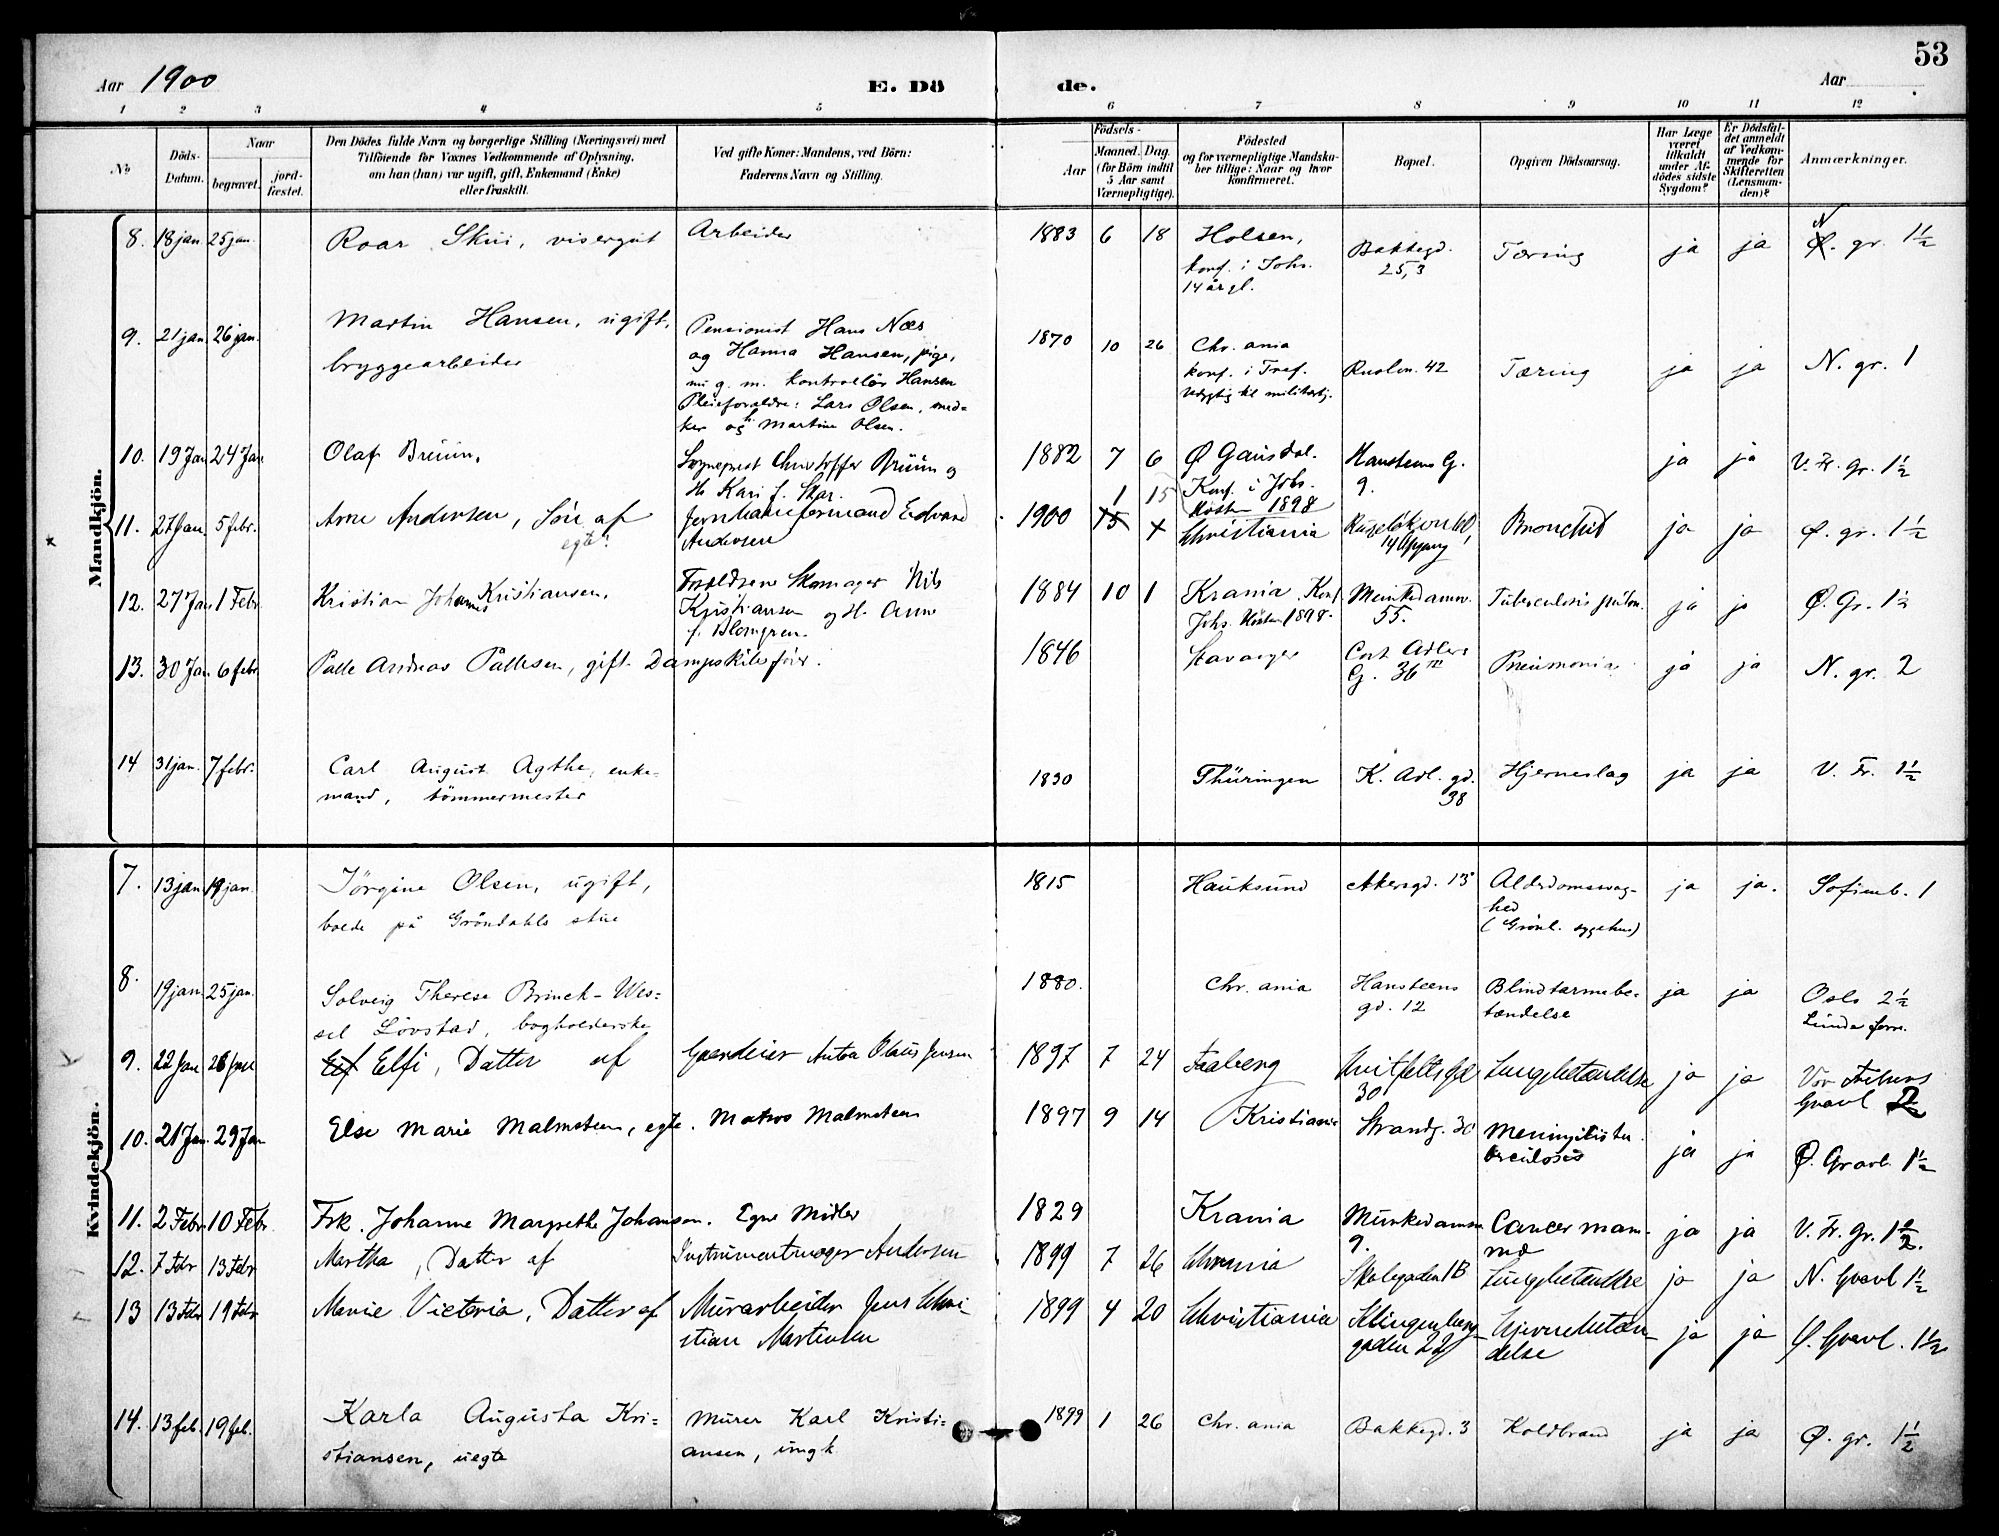 53
Aar 1900
E. Dö de.
Aar
1 2 3 4 5 6 7 8 9 10 11 12
No
Döds-Datum.
Naar
begravet.
jord-fæstet.
Den Dödes fulde Navn og borgerlige Stilling (Næringsvei) med
Tilföiende for Voxnes Vedkommende af Oplysning,
om han (hun) var ugift, gift, Enkemand (Enke)
eller fraskilt.
Ved gifte Koner: Mandens, ved Börn:
Faderens Navn og Stilling.
Födsels-
Aar
Maaned. Dag.
(for Börn indtil
5 Aar samt
Værnepligtige).
Födested
og for værnepligtige Mandska-
ber tillige: Naar og hvor
konfirmeret.
Bopæl.
Opgiven Dödsaarsag.
Har Læge
været
tilkaldt
under Af-
dödes sidste
Sygdom?
Er Dödsfal-
det anmeldt
af Vedkom-
mende for
Skifteretten
(Lensman-
den)?
Anmærkninger.
Mandkjön.
8. 18 jan. 25 jan. Roar Skui, visergut Arbeider 1883 6 18 Holsen, Bakkegd. Tæring ja ja N gr. 1½
konf. i Johs. 25,3
14 år gl.
9. 21 jan. 26 jan. Martin Hansen, ugift, Pensionist Hans Næs 1870 10 26 Chr. ania Rusløn. 42 Tæring ja ja N. gr. 1
bryggearbeider og Hanna Hansen, pige, konf. i Tref.
nu g. m. Kontrollør Hansen
Pleieforældre: Lars Olsen, snedker og Martine Olsen.
10. 19 Jan 24 Jan Olaf Bruun. Sogneprest Christoffer Bruun og 1882 7 6 Ø Gausdal. Hansteens G. ja ja V. Fr. gr. 1½
H. Kari f. Skar. Konf. i Johs. 9.
Høsten 1898
11. 27 Jan 5 febr. Arne Andersen, Søn af Edvard 1900 1 15 Christiania Bronchit ja ja Ø. gr. 1½
egte? Andersen 14 Opgang
12. 27 Jan 1 Febr Kristian Johannes Kristiansen. Forældrene Skomager Nils 1884 10 1 Krania. Konf Munkedamsv. Tuberculosis pulm. ja ja Ø. Gr. 1½
Kristiansen og H. Anna Johs. Høsten 1898. 55.
f. Blomgren.
13. 30 Jan 6 febr. Palle Andreas Pallesen, gift. Dampskibsfører. 1846 Stavanger Cort Adlers Pneumonia ja ja N. gr. 2
G. 36 III
14 31 jan. 7 febr. Carl August Agthe, enke= 1830 Thüringen K. Adl. gd. Hjerneslag ja ja V. Fr. 1½
mand, tömmermester 38
Kvindekjön.
7. 13 jan 19 jan. Jörgine Olsen, ugift, 1815 Hauksund Akersgd. 13 Alderdomssvag- ja ja. Sofienb. 1
boede på Gröndahls stue hed
(Grönl. sygehus)
8. 19 jan. 25 jan. Solveig Therese Brinck-Wes= 1880. Chr. ania Hansteens Blindtarmsbe= ja ja Oslo 2½
sel Lövstad, bogholderske gd. 12 tændelse
9. 22 Jan 26 Jan Elfi, Datter af Gaardeier Anton Olaus Jensen 1897 7 24 Faaberg Huitfeltsgd Lungebetændelse ja ja Vor Frelsers
30 Gravl 2
10. 21 Jan. 29 Jan Else Marie Malmsteen, egte. Matros Malmsteen 1897 9 14 Kristiania Strandg. 30 Meningitis tu- ja ja Ø. Gravl. 1½
berculosis
11. 2 Febr 10 Febr. Frk. Johanne Margrethe Johansen. Egne Midler 1829 Krania Munkedamsv Cancer mam- ja ja V. Fr. Gr. 1½.
9. mæ
12. 7 Febr 13 Febr Martha, Datter af Instrumentmager Andersen 1899 7 26 Chrania Skolegaden 1B Lungebetændelse ja ja N. Gravl 1½
13 13 Febr 19 Febr Marie Victoria, Datter af Murarbeider Jens Chri- 1899 4 20 Christiania Klingenberg- Hjernebetæn- ja ja Ø. Gravl. 1½
stian Martinsen gaden delse
14. 13 feb. 19 feb. Karla Augusta Kri= Murer Karl Kristi= 1899 1 26 Chr. ania Bakkegd. 3 Koldbrand ja ja Ø. gr. 1½
stiansen, uegte ansen, ungk